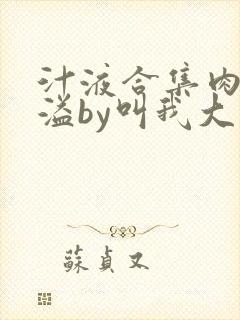 汁液合集肉
溢by叫我大
蘇貞又